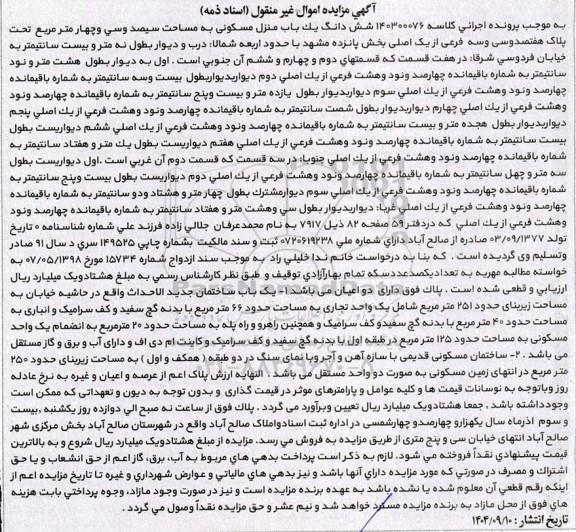 آگهي مزايده اموال غير منقول (اسناد ذمه)
به موجب پرونده اجرائي كلاسه ۱۴۰۳۰۰۰۷۶ شش دانگ يك باب منزل مسكونى به مساحت سيصد وسي وچهار متر مربع تحت
پلاک هفتصدوسی وسه فرعی از یک اصلی بخش پانزده مشهد با حدود اربعه شمالا: درب و ديوار بطول نه متر و بيست سانتيمتر به
خيابان فردوسي شرقا: در هفت قسمت كه قسمتهاي دوم و چهارم و ششم آن جنوبي است . اول به ديوار بطول هشت متر و نود
سانتيمتر به شماره باقيمانده چهارصد ونود وهشت فرعي از يك اصلي دوم ديواريديواربطول بيست وسه سانتيمتر به شماره باقيمانده
چهارصد ونود وهشت فرعي از يك اصلي سوم ديواريديوار بطول يازده متر و بيست وپنج سانتيمتر به شماره باقيمانده چهارصد ونود
وهشت فرعي از يك اصلي چهارم ديواريديوار بطول شصت سانتيمتر به شماره باقيمانده چهارصد ونود وهشت فرعي از يك اصلي پنجم
ديواريديوار بطول هجده متر و بيست سانتيمتر به شماره باقيمانده چهارصد ونود وهشت فرعي از يك اصلي ششم ديواريست بطول
بيست سانتيمتر به شماره باقيمانده چهارصد ونود وهشت فرعي از يك اصلي هفتم ديواريست بطول يك متر و هفتاد سانتيمتر به
شماره باقيمانده چهارصد ونود وهشت فرعي از يك اصلي جنوبا: در سه قسمت كه قسمت دوم آن غربي است .اول ديواريست بطول
سه متر و چهل سانتيمتر به شماره باقيمانده چهارصد ونود وهشت فرعي از يك اصلي دوم ديواريست بطول بيست وپنج سانتيمتر به
شماره باقيمانده چهارصد ونود وهشت فرعي از يك اصلي سوم ديوارمشترك بطول چهار متر و هشتاد ودو سانتيمتر به شماره باقيمانده
چهارصد ونود وهشت فرعي از يك اصلي غربا: ديواريديوار بطول سي وهشت متر و هفتاد سانتيمتر به شماره باقيمانده چهارصد ونود
وهشت فرعي از يك اصلي كه دردفتر ۵۹ صفحه ۸۲ ذيل ۷۹۱۷ به نام محمدعرفان جلالي زاده فرزند علي شماره شناسنامه ۰ تاريخ
تولد ۰۳/۰۹/۱۳۷۷ صادره از صالح آباد داراي شماره ملي ۰۷۲۰۶۱۹۲۳۸ ثبت و سند مالكيت بشماره چاپي ۱۴۹۵۲۵ سري د سال ۹۱ صادر
وتسليم وی گرديده است . كه بنا به درخواست خانم ندا خليلي راد به موجب سند ازدواج شماره ۱۵۷۳۴ مورخ ۰۷/۰۵/۱۳۹۸ به
خواسته مطالبه مهريه به تعداديكصدعددسكه تمام بهارآزادي توقيف و طبق نظر كارشناس رسمي به مبلغ هشتادويك ميليارد ريال
ارزيابي و قطعي شده است . پلاك فوق داراى دو اعيان مى باشد ۱- يک باب ساختمان جديد الاحداث واقع در حاشيه خيابان به
مساحت زيربناى حدود ۲۵۱ متر مربع شامل يک واحد تجارى به مساحت حدود ۶۶ متر مربع با بدنه گچ سفيد و كف سراميک و انبارى به
مساحت حدود ۴۰ متر مربع با بدنه گچ سفيدو كف سراميک و همچنين راهرو و راه پله به مساحت حدود ۲۰ مترمربع به انضمام يک واحد
مسكونى به مساحت حدود ۱۲۵ متر مربع در طبقه اول با بدنه گچ سفيد و كف سراميک و كابينت ام دى اف و داراى آب و برق و گاز مستقل
مى باشد . ۲- ساختمان مسكونى قديمى با سازه آهن و آجر و با نماى سنگ در دو طبقه ( همكف و اول ) به مساحت زيربناى حدود ۲۵۰
متر مربع در انتهاى زمين مسكونى به صورت دو واحد مستقل مى باشد . النهايه ارزش پلاک اعم از عرصه و اعيان و غيره به نرخ عادله
روز وباتوجه به نوسانات قيمت ها و كليه عوامل و پارامترهاى موثر در قيمت گذارى و بدون توجه به ديون و تعهداتى كه ممكن است
وجودداشته باشد , جمعا هشتادويک ميليارد ريال تعيين وبرآورد مى گردد . پلاك فوق از ساعت نه صبح الي دوازده روز يكشنبه ,بيست
و سوم آذرماه سال يكهزاروچهارصدو چهارشمسى در اداره ثبت اسنادواملاک صالح آباد واقع در شهرستان صالح آباد بخش مركزى شهر
صالح آباد انتهاى خيابان سى و پنج مترى از طريق مزايده به فروش مي رسد. مزايده از مبلغ هشتادويک ميليارد ريال شروع و به بالاترين
قيمت پيشنهادي نقداً فروخته مي شود. لازم به ذكر است پرداخت بدهي هاي مربوط به آب، برق، گاز اعم از حق انشعاب و يا حق
اشتراك و مصرف در صورتي كه مورد مزايده داراي آنها باشد و نيز بدهي هاي مالياتي و عوارض شهرداري و غيره تا تاريخ مزايده اعم از
اينكه رقم قطعي آن معلوم شده يا نشده باشد به عهده برنده مزايده است و نيز در صورت وجود مازاد، وجوه پرداختي بابت هزينه
هاي فوق از محل مازاد به برنده مزايده مسترد خواهد شد و نيم عشر و حق مزايده نقداً وصول مي گردد .
تاريخ انتشار : ۱۴۰۴/۰۹/۱۰